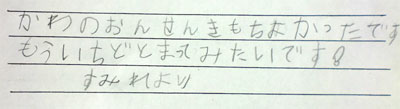 かわのおんせんきもちよかったです
もういちどとまってみたいです。
すみれより